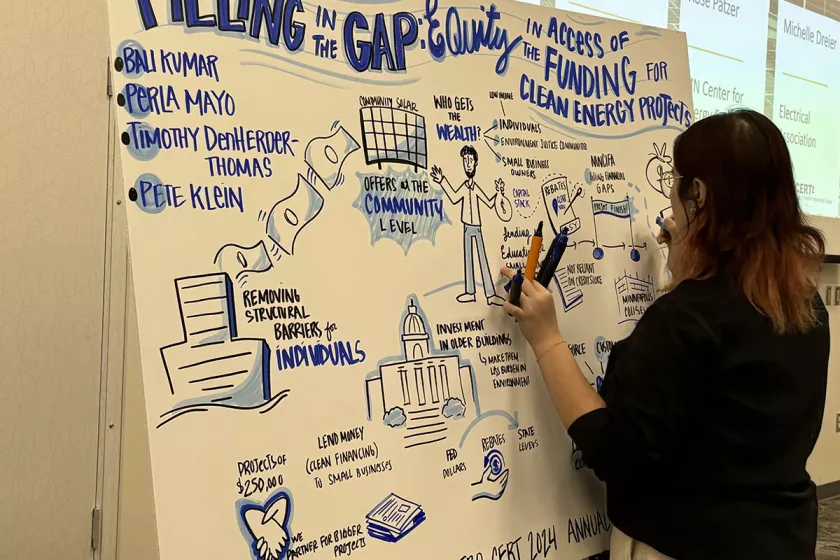 FILLING IN THE GAP: EQUITY IN ACCESS OF THE FUNDING FOR CLEAN ENERGY PROJECTS
BALI KUMAR
PERLA MAYO
TIMOTHY DENHERDER-
THOMAS
PETE KLEIN
COMMUNITY SOLAR
OFFERS AT THE
COMMUNITY
LEVEL
WHO GETS
THE
WEALTH?
LOW INCOME
INDIVIDUALS
ENVIRONMENT JUSTICE COMMUNITY
SMALL BUSINESS
OWNERS
CAPITAL
STACK
REBATES
MNCIFA
FINANCIAL
GAPS
PROJECT FINISH!
lending
NOT RELIANT
ON CREDIT SCORE
MINNEAPOLIS
REMOVING
STRUCTURAL
BARRIERS for
INDIVIDUALS
INVESTMENT
IN OLDER BUILDINGS
↳ MAKE THEM
LESS BURDEN ON
ENVIRONMENT
LEND MONEY
(CLEAN FINANCING)
TO SMALL BUSINESSES
FED
DOLLARS
REBATES
STATE
LEVELS
PROJECTS OF
$250,000
WE
PARTNER FOR BIGGER
PROJECTS
CERT 2024 ANNUAL
Patzer
Michelle Dreier
N Center for
Electrical
Association
CERTs